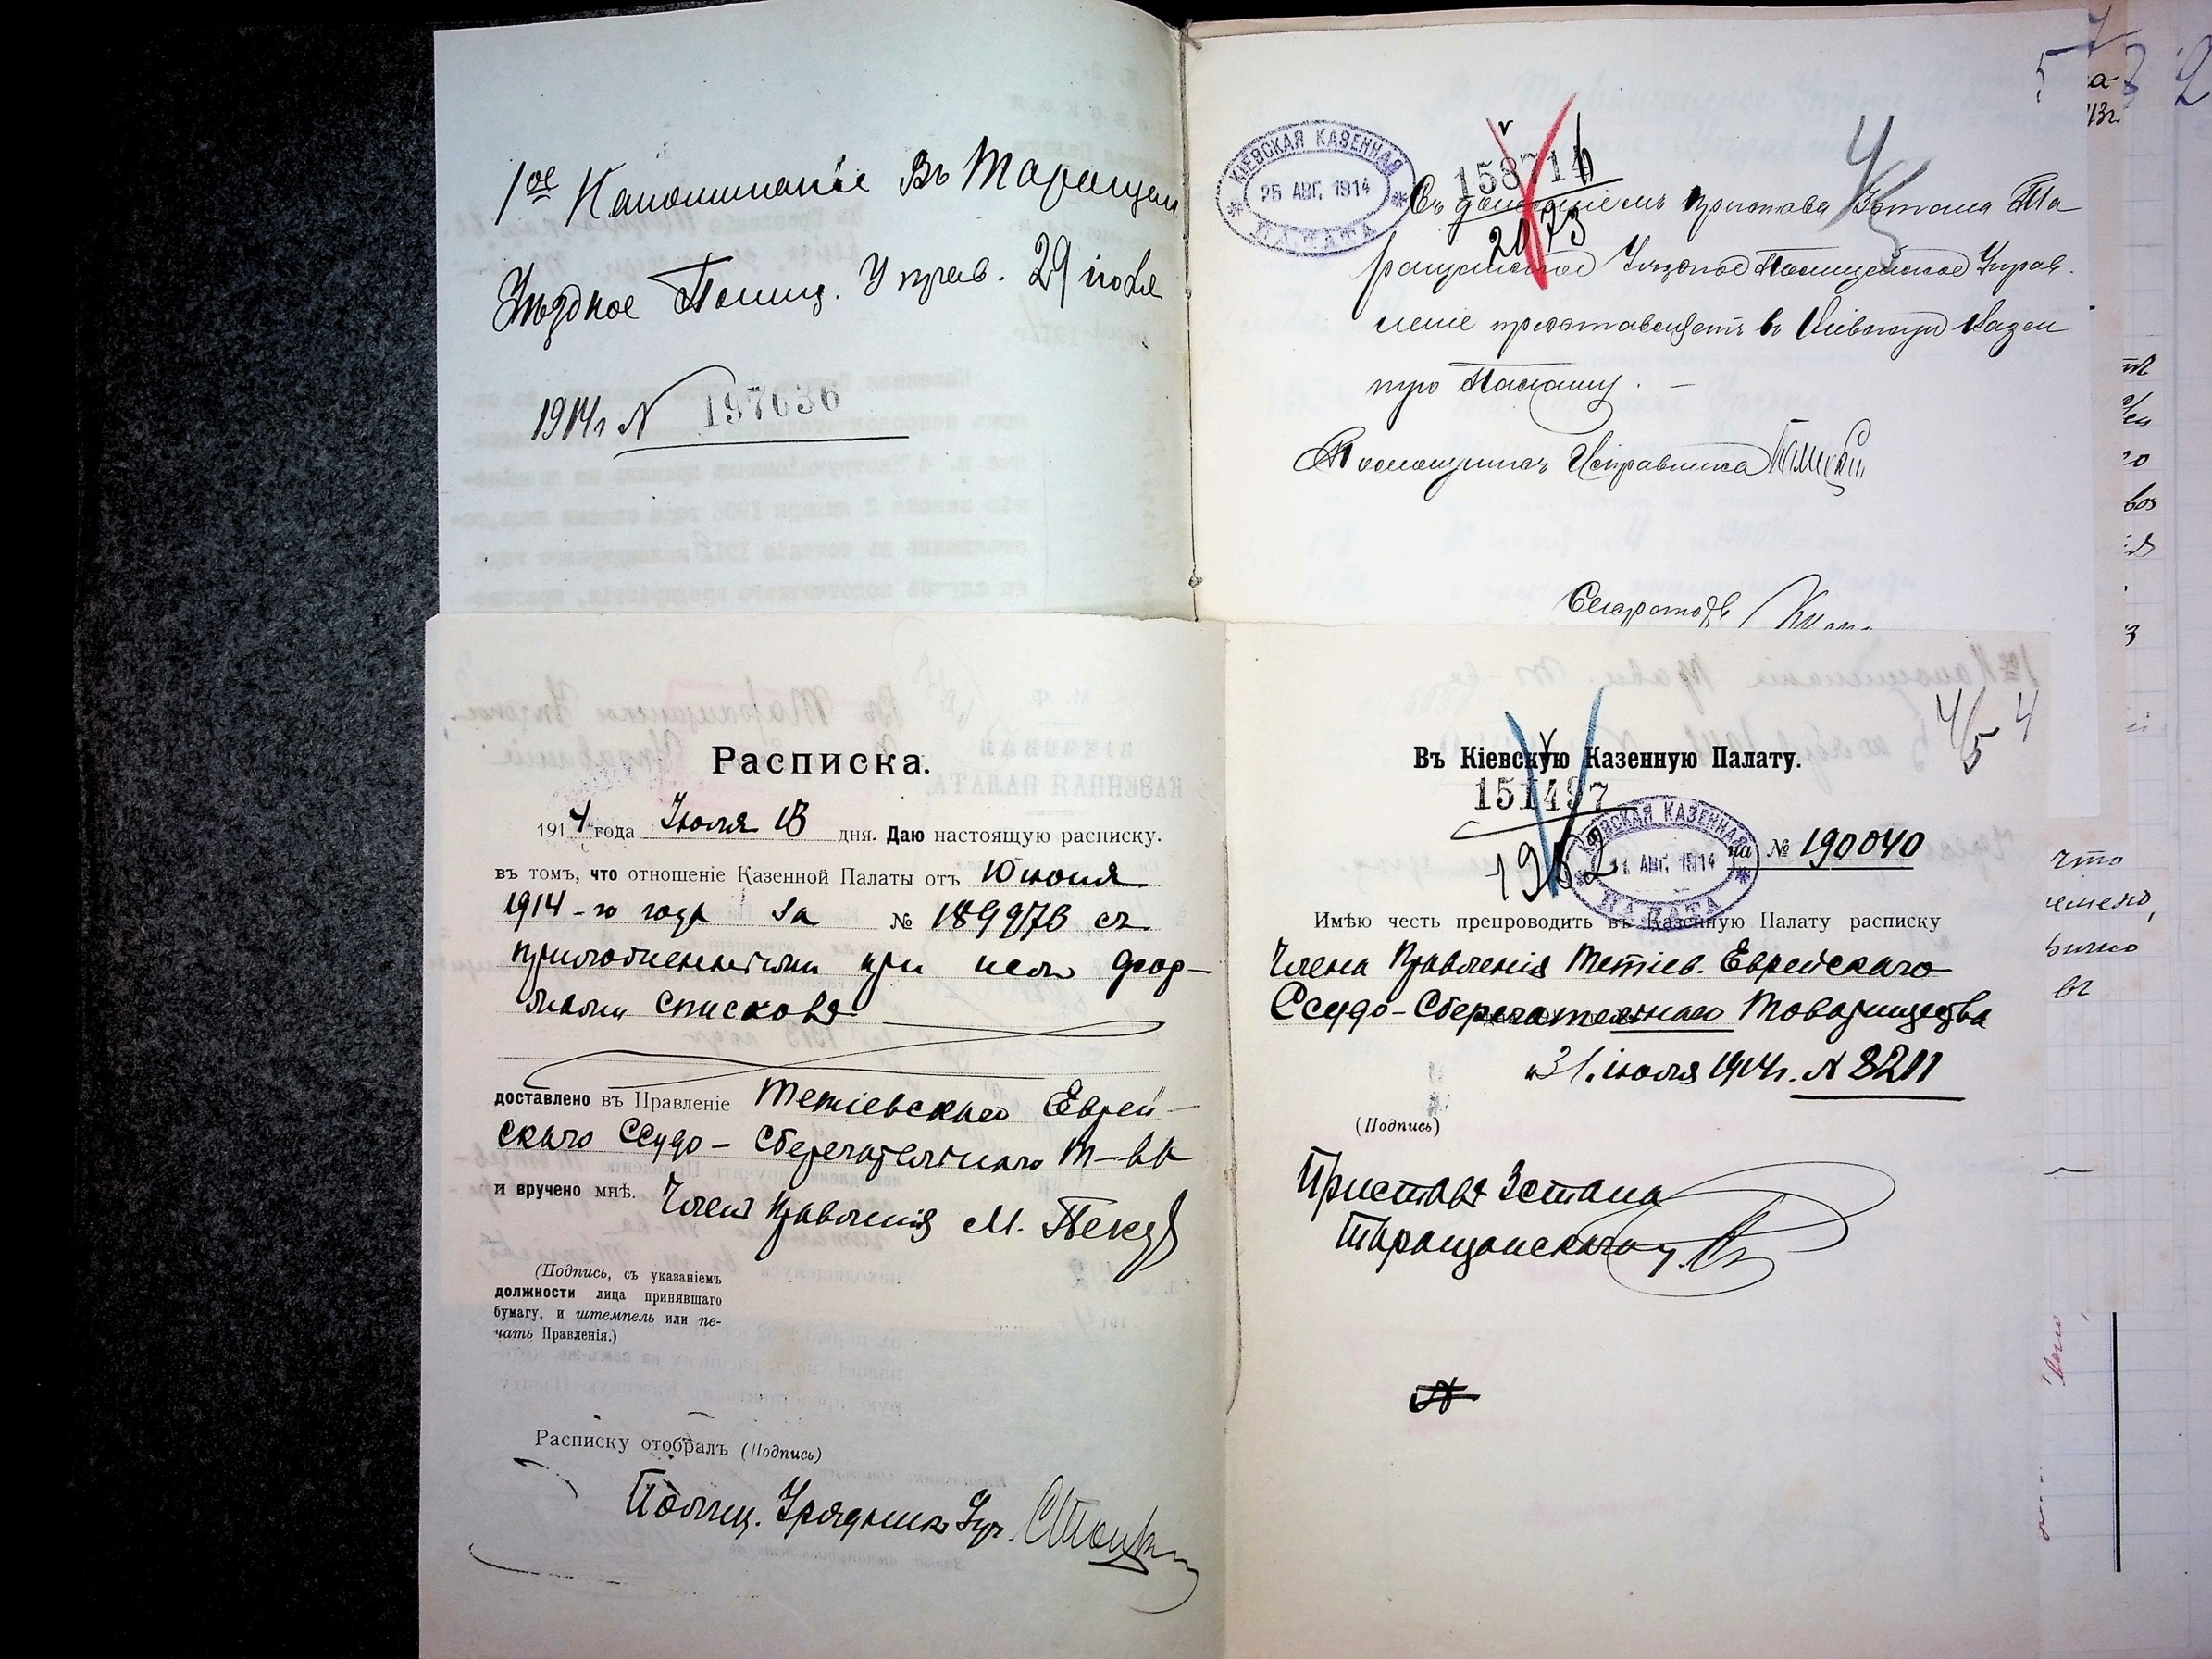 1ое Напоминаніе Въ Таращан
Уѣздное Полиц. Управ. 29 іюля
1914 г N 197636
КІЕВСКАЯ КАЗЕННАЯ
25 АВГ. 1914
ПАЛАТА
158714
2073
4/5
Съ донесеніемъ Пристава 3 стана Та
ращанское Уѣздное Полицейское Управ.
леніе представляетъ въ Кіевскую Казен
ную Палату. —
Помощникъ Исправника
Секретарь
Расписка.
1914 года Іюля 18 дня. Даю настоящую расписку.
въ томъ, что отношеніе Казенной Палаты отъ 10 іюня
1914-го года за № 189976 съ
приложенными при немъ фор-
мами списковъ
доставлено въ Правленіе Тетіевскаго Еврей-
скаго Ссудо-Сберегательнаго Т-ва
и вручено мнѣ. Членъ Правленія М.
(Подпись, съ указаніемъ
должности лица принявшаго
бумагу, и штемпель или пе-
чать Правленія.)
Расписку отобралъ (Подпись)
Полиц. Урядникъ
4/5 4
Въ Кіевскую Казенную Палату.
151497
1962
КІЕВСКАЯ КАЗЕННАЯ
АВГ. 1914
ПАЛАТА
на № 190040
Имѣю честь препроводить въ Казенную Палату расписку
Члена Правленія Тетіев. Еврейскаго
Ссудо-Сберегательнаго Товарищества
"31" іюля 1914 г. N 8211
(Подпись)
Приставъ 3 стана
Таращанскаго у.